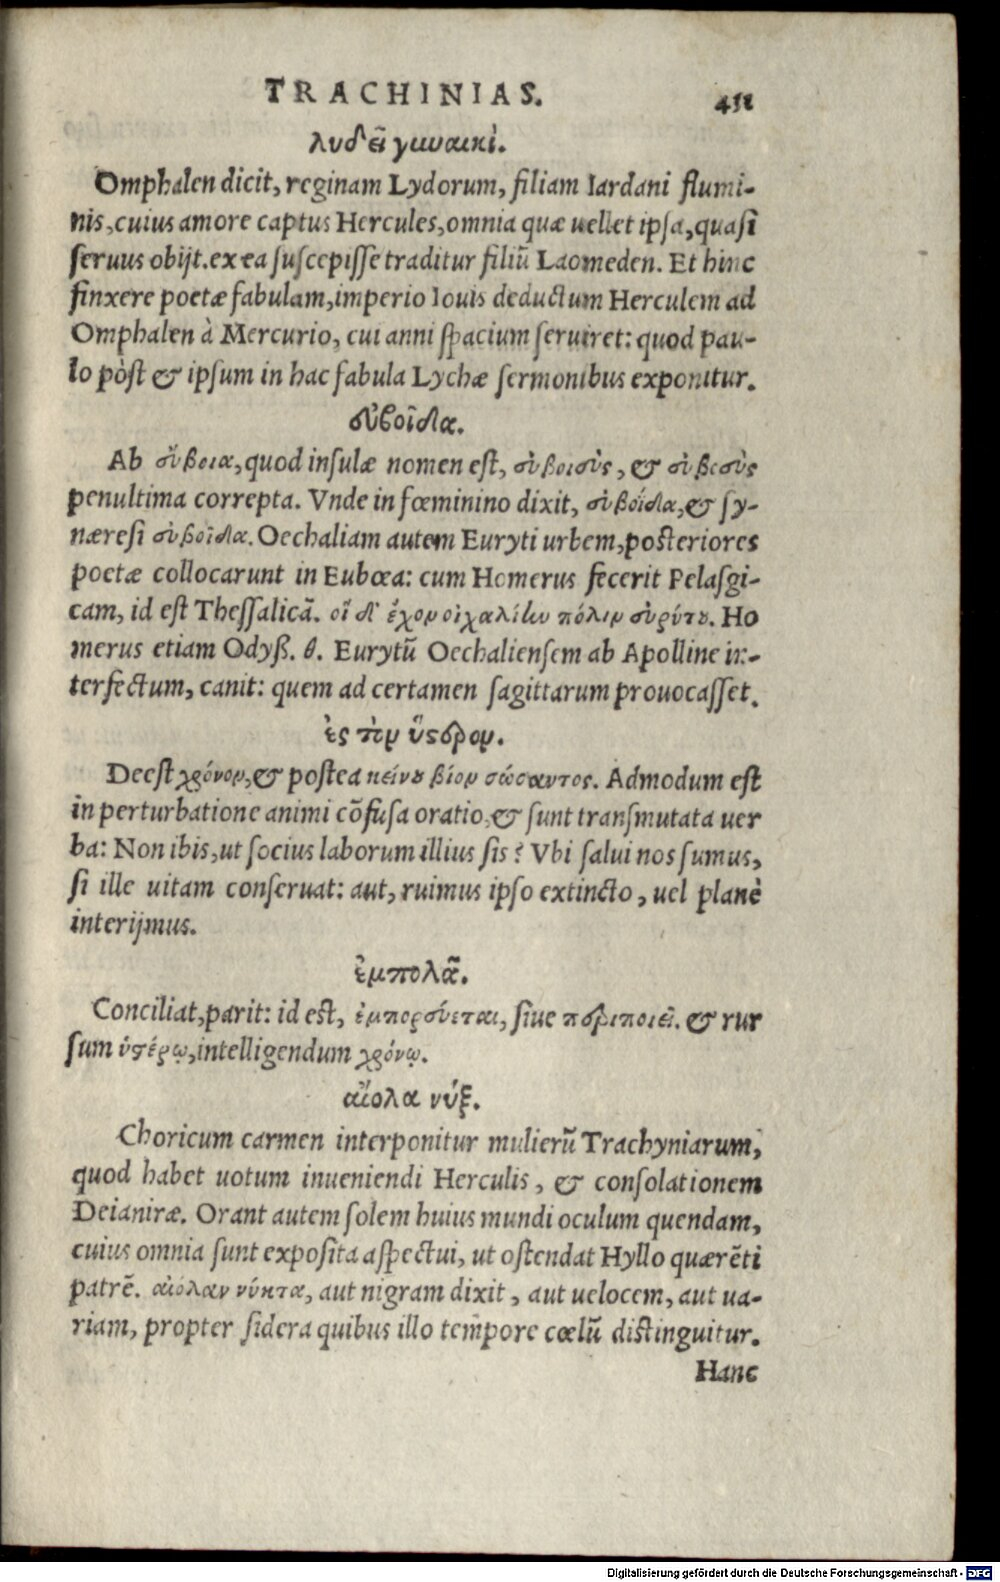 TRACHINIAS. 411
λυδῇ γυναικὶ.
Omphalen dicit, reginam Lydorum, filiam Iardani flumi-
nis, cuius amore captus Hercules, omnia quæ uellet ipsa, quasi
seruus obijt. ex ea suscepisse traditur filiũ Laomeden. Et hinc
finxere poetæ fabulam, imperio Iouis deductum Herculem ad
Omphalen à Mercurio, cui anni spacium seruiret: quod pau-
lo pòst & ipsum in hac fabula Lychæ sermonibus exponitur.
εὐβοῖδα.
Ab εὔβοια, quod insulæ nomen est, εὐβοιεὺς, & εὐβοεὺς
penultima correpta. Vnde in fœminino dixit, εὐβοΐδα, & sy-
næresi εὐβοῖδα. Oechaliam autem Euryti urbem, posteriores
poetæ collocarunt in Eubœa: cum Homerus fecerit Pelasgi-
cam, id est Thessalicã. οἵ δ' ἔχον οἰχαλίην πόλιν εὐρύτου. Ho
merus etiam Odyß. θ. Eurytũ Oechaliensem ab Apolline in-
terfectum, canit: quem ad certamen sagittarum prouocasset.
ἐς τὸν ὕστερον.
Deest χρόνον, & postea κείνου βίον σώσαντος. Admodum est
in perturbatione animi cõfusa oratio, & sunt transmutata uer
ba: Non ibis, ut socius laborum illius sis? Vbi salui nos sumus,
si ille uitam conseruat: aut, ruimus ipso extincto, uel planè
interijmus.
ἐμπολᾶ.
Conciliat, parit: id est, ἐμπορεύεται, siue περιποιεῖ. & rur
sum ὑστέρῳ, intelligendum χρόνῳ.
αἰόλα νύξ.
Choricum carmen interponitur mulierũ Trachyniarum,
quod habet uotum inueniendi Herculis, & consolationem
Deianiræ. Orant autem solem huius mundi oculum quendam,
cuius omnia sunt exposita aspectui, ut ostendat Hyllo quærẽti
patrẽ. αἰόλαν νύκτα, aut nigram dixit, aut uelocem, aut ua-
riam, propter sidera quibus illo tempore cœlũ distinguitur.
Hanc
Digitalisierung gefördert durch die Deutsche Forschungsgemeinschaft - DFG